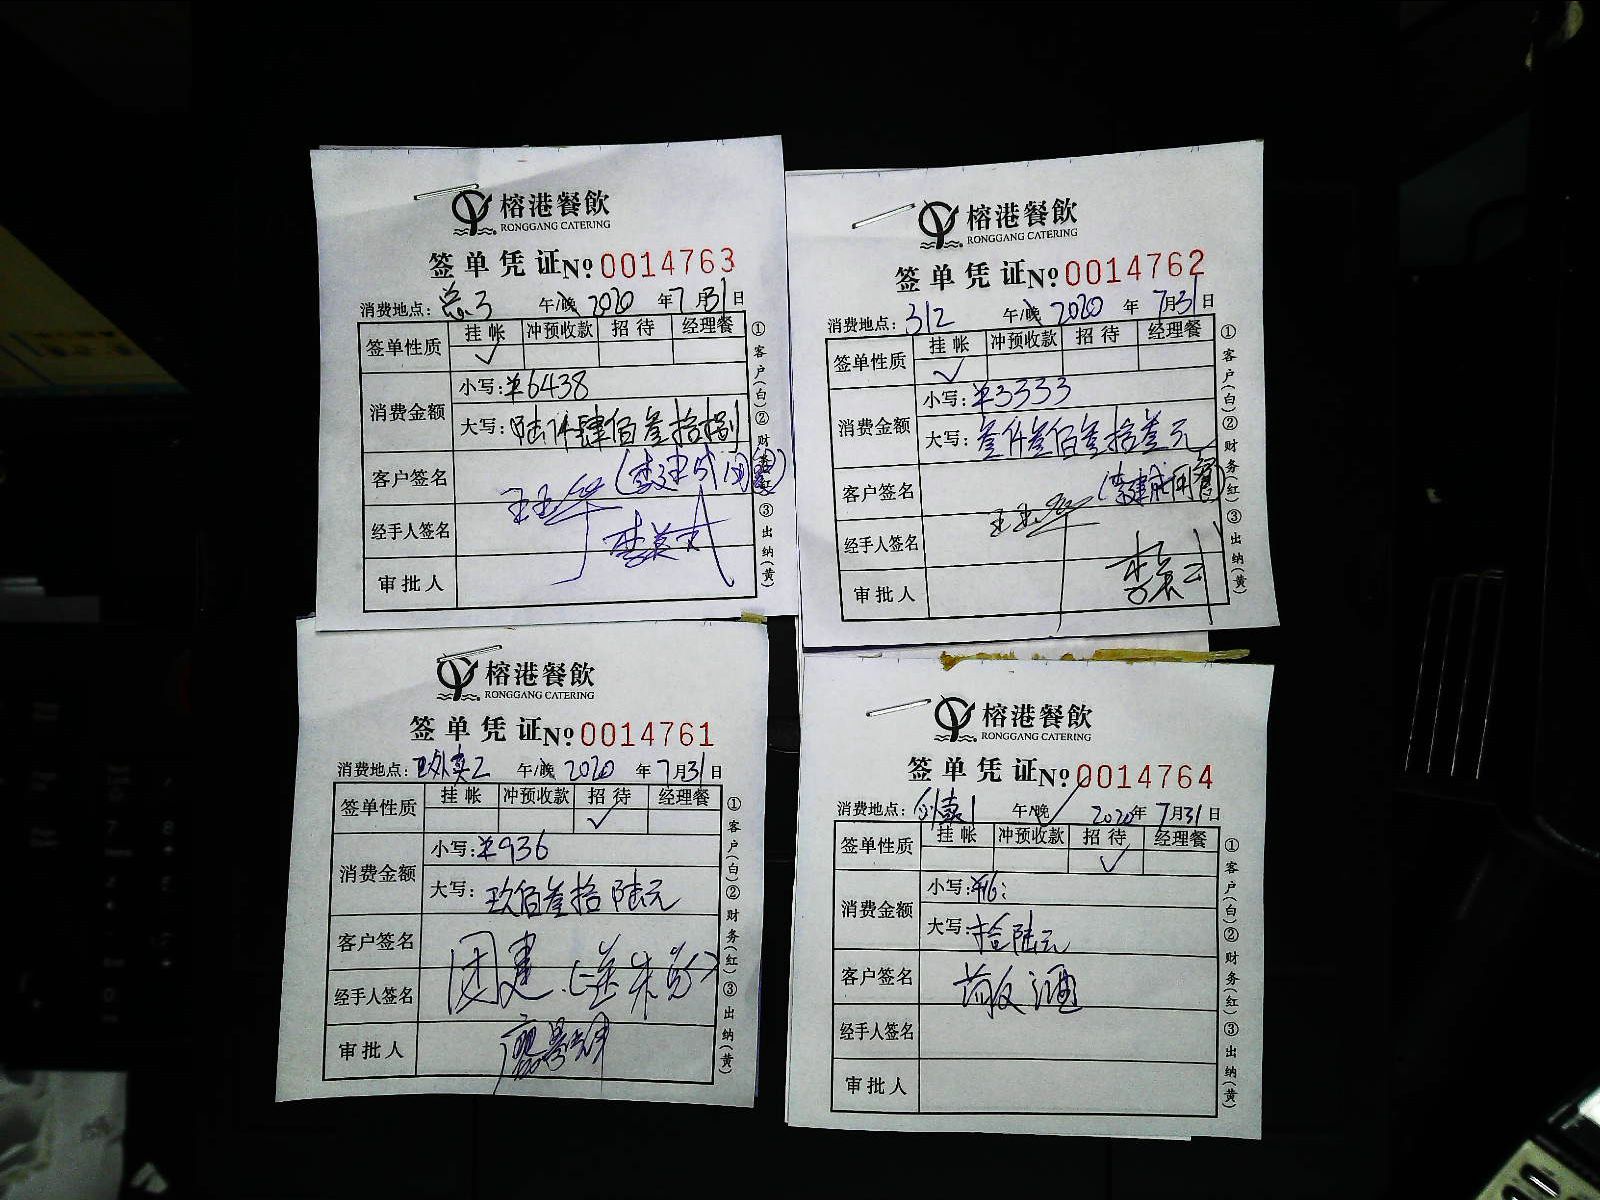 榕港餐飲
RONGGANG CATERING
签单凭证 №0014763
消费地点：总3 午/晚 2020年7月31日
签单性质 挂帐 冲预收款 招待 经理餐
✓
消费金额 小写：¥6438
大写：陆仟肆佰叁拾捌
客户签名
王玉华
经手人签名
审批人
①客户(白)②财务(红)③出纳(黄)
榕港餐飲
RONGGANG CATERING
签单凭证 №0014762
消费地点：312 午/晚 2020年7月31日
签单性质 挂帐 冲预收款 招待 经理餐
✓
消费金额 小写：¥3333
大写：叁仟叁佰叁拾叁元
客户签名
王玉华
经手人签名
审批人
①客户(白)②财务(红)③出纳(黄)
榕港餐飲
RONGGANG CATERING
签单凭证 №0014761
消费地点：外卖2 午/晚 2020年7月31日
签单性质 挂帐 冲预收款 招待 经理餐
✓
消费金额 小写：¥936
大写：玖佰叁拾陆元
客户签名 团建
经手人签名
审批人
①客户(白)②财务(红)③出纳(黄)
榕港餐飲
RONGGANG CATERING
签单凭证 №0014764
消费地点：外卖1 午/晚 ✓ 2020年7月31日
签单性质 挂帐 冲预收款 招待 经理餐
✓
消费金额 小写：¥16：
大写：拾陆元
客户签名
经手人签名
审批人
①客户(白)②财务(红)③出纳(黄)